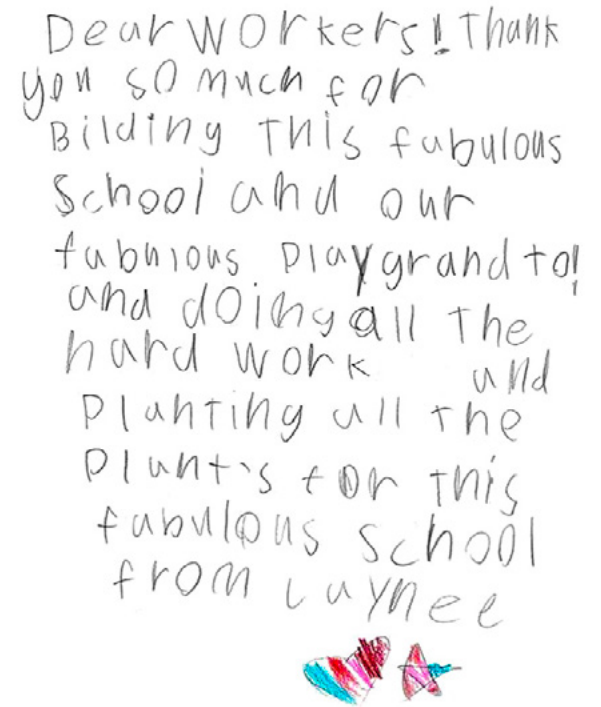 Dear workers! Thank
you so much for
Bilding This fabulous
School and our
fabulous playgrand to!
and doing all The
hard work and
planting all the
plant's for this
fabulous school
from Laynee